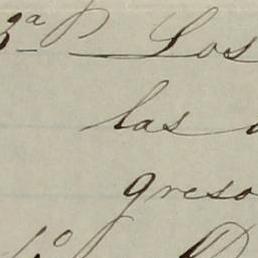 3ª P Los
las
greso